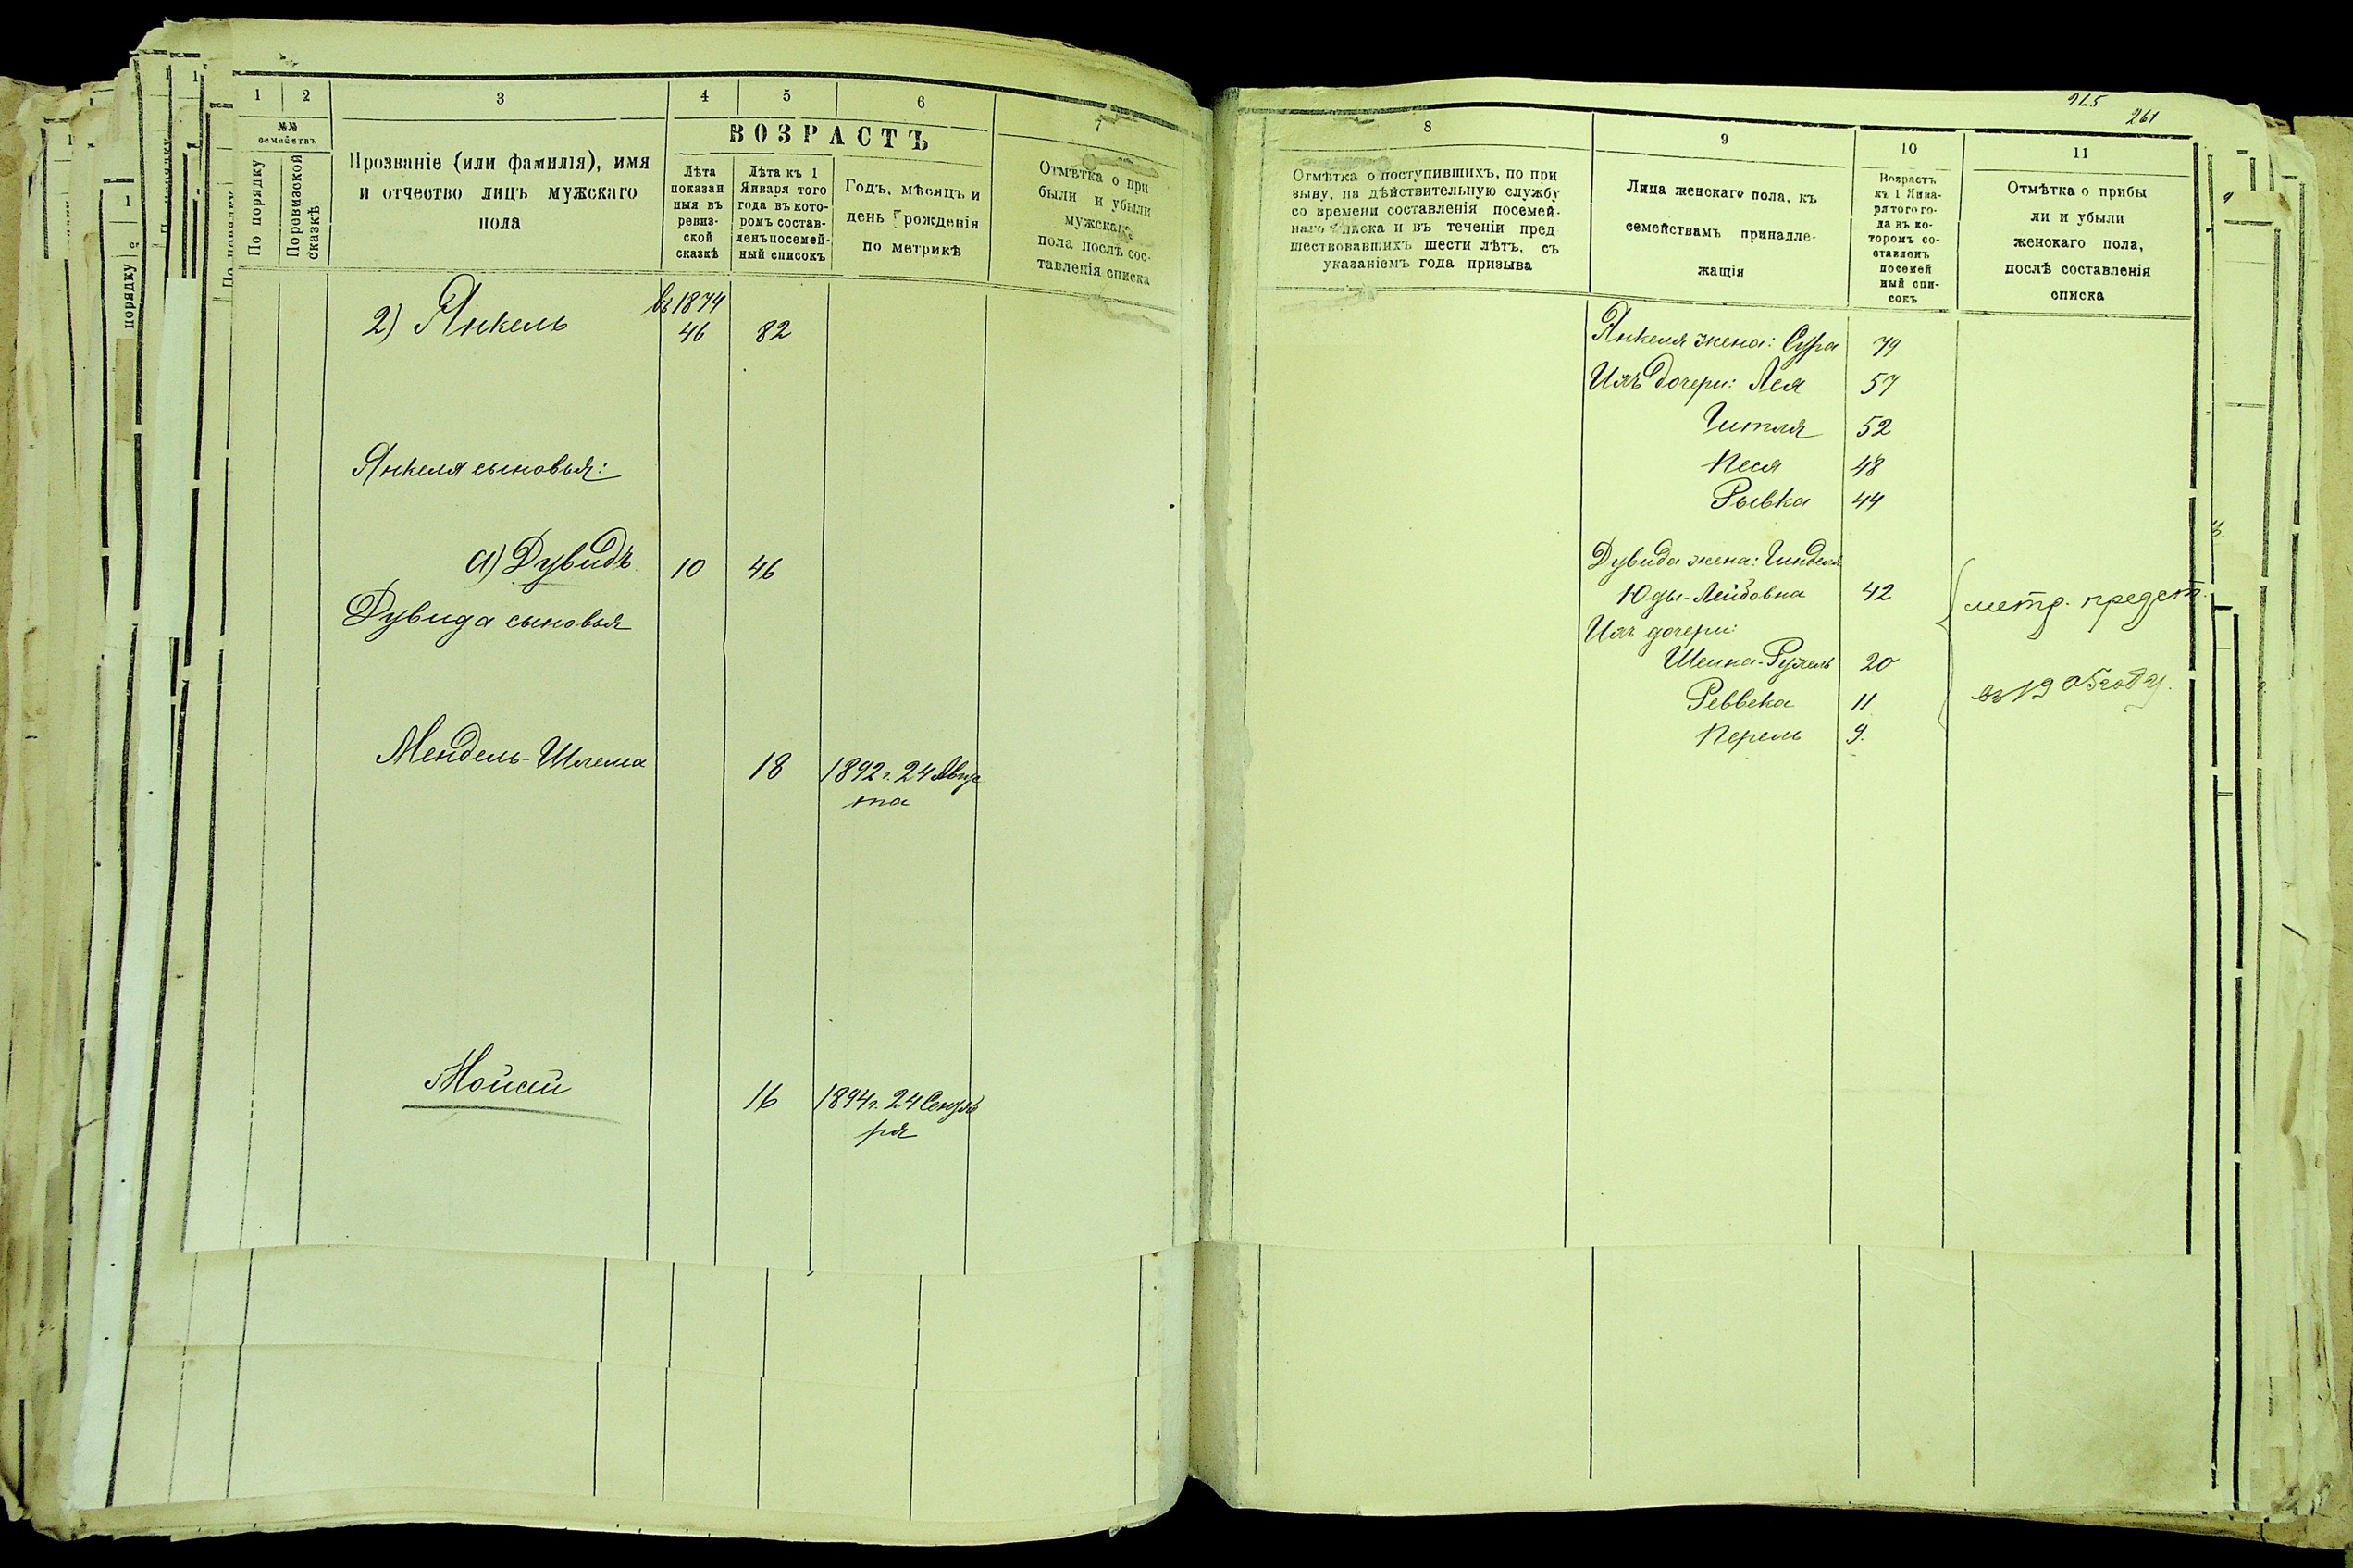 1 2 3 4 5 6 7
№№ семействъ
По порядку
По ревизской сказкѣ
Прозваніе (или фамилія), имя
и отчество лицъ мужскаго
пола
ВОЗРАСТЪ
Лѣта
показан
ныя въ
ревиз-
ской
сказкѣ
Лѣта къ 1
Января того
года въ кото-
ромъ состав-
ленъ посемей-
ный списокъ
Годъ, мѣсяцъ и
день рожденія
по метрикѣ
Отмѣтка о при
были и убыли
мужскаго
пола послѣ сос-
тавленія списка
въ 1874
2) Янкель 46 82
Янкеля сыновья:
а) Дувидъ 10 46
Дувида сыновья
Мендель-Шлема 18 1892 г. 24 Авгу
ста
Мойсей 16 1894 г. 24 Сентяб
ря
265
261
8 9 10 11
Отмѣтка о поступившихъ, по при
зыву, на дѣйствительную службу
со времени составленія посемей-
наго списка и въ теченіи пред
шествовавшихъ шести лѣтъ, съ
указаніемъ года призыва
Лица женскаго пола, къ
семействамъ принадле-
жащія
Возрастъ
къ 1 Янва-
ря того го-
да въ ко-
торомъ со-
ставленъ
посемей
ный спи-
сокъ
Отмѣтка о прибы
ли и убыли
женскаго пола,
послѣ составленія
списка
Янкеля жена: Сура 79
Ихъ дочери: Лея 57
Гитля 52
Песя 48
Рывка 44
Дувида жена: Гинделя
Юды-Лейбовна 42
метр. предст.
Ихъ дочери:
Шейна-Рухель 20
въ 1905 году.
Реввека 11
Перель 9.